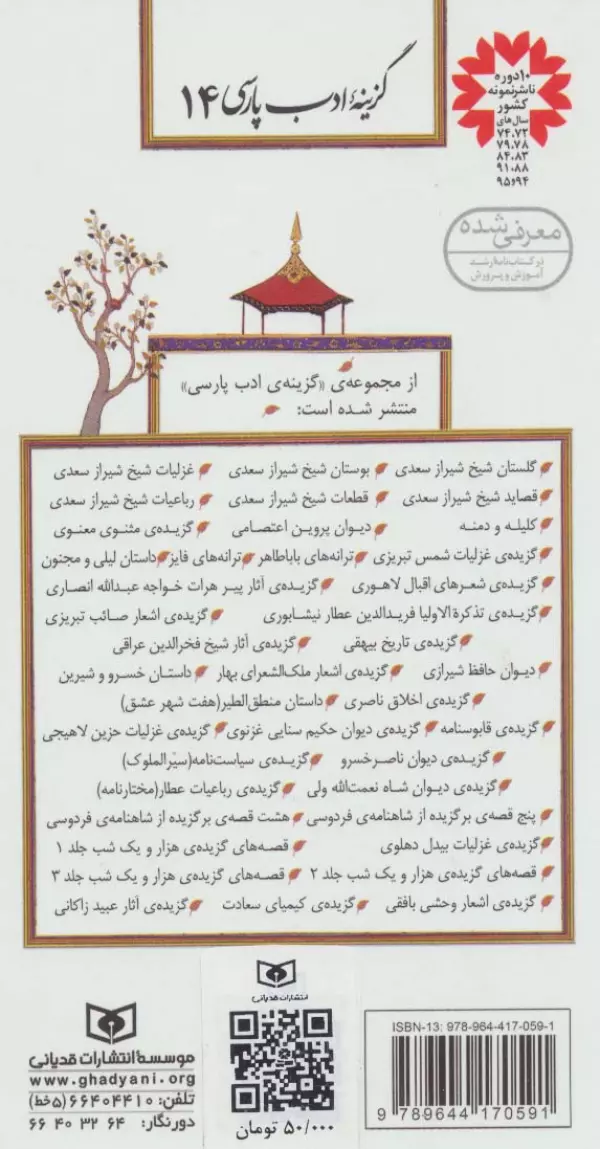 گزینهٔ ادب پارسی ۱۴
۱۰ دوره
ناشر نمونه
کشور
سال‌های
۷۴،۷۲
۷۹،۷۸
۸۴،۸۳
۹۱،۸۸
۹۴و۹۵
معرفی شده
در کتاب‌نامهٔ رشد
آموزش و پرورش
از مجموعه‌ی «گزینه‌ی ادب پارسی»
منتشر شده است:
گلستان شیخ شیراز سعدی بوستان شیخ شیراز سعدی غزلیات شیخ شیراز سعدی
قصاید شیخ شیراز سعدی قطعات شیخ شیراز سعدی رباعیات شیخ شیراز سعدی
کلیله و دمنه دیوان پروین اعتصامی گزیده‌ی مثنوی معنوی
گزیده‌ی غزلیات شمس تبریزی ترانه‌های باباطاهر ترانه‌های فایز داستان لیلی و مجنون
گزیده‌ی شعرهای اقبال لاهوری گزیده‌ی آثار پیر هرات خواجه عبدالله انصاری
گزیده‌ی تذکرة الاولیا فریدالدین عطار نیشابوری گزیده‌ی اشعار صائب تبریزی
گزیده‌ی تاریخ بیهقی گزیده‌ی آثار شیخ فخرالدین عراقی
دیوان حافظ شیرازی گزیده‌ی اشعار ملک‌الشعرای بهار داستان خسرو و شیرین
گزیده‌ی اخلاق ناصری داستان منطق‌الطیر(هفت شهر عشق)
گزیده‌ی قابوسنامه گزیده‌ی دیوان حکیم سنایی غزنوی گزیده‌ی غزلیات حزین لاهیجی
گزیده‌ی دیوان ناصرخسرو گزیده‌ی سیاست‌نامه(سیَرالملوک)
گزیده‌ی دیوان شاه نعمت‌الله ولی گزیده‌ی رباعیات عطار(مختارنامه)
پنج قصه‌ی برگزیده از شاهنامه‌ی فردوسی هشت قصه‌ی برگزیده از شاهنامه‌ی فردوسی
گزیده‌ی غزلیات بیدل دهلوی قصه‌های گزیده‌ی هزار و یک شب جلد ۱
قصه‌های گزیده‌ی هزار و یک شب جلد ۲ قصه‌های گزیده‌ی هزار و یک شب جلد ۳
گزیده‌ی اشعار وحشی بافقی گزیده‌ی کیمیای سعادت گزیده‌ی آثار عبید زاکانی
انتشارات قدیانی
۵۰/۰۰۰ تومان
ISBN-13: 978-964-417-059-1
9 789644 170591
موسسهٔ انتشارات قدیانی
www.ghadyani.org
تلفن: ۶۶۴۰۴۴۱۰ (۵خط)
دورنگار: ۶۶ ۴۰ ۳۲ ۶۴